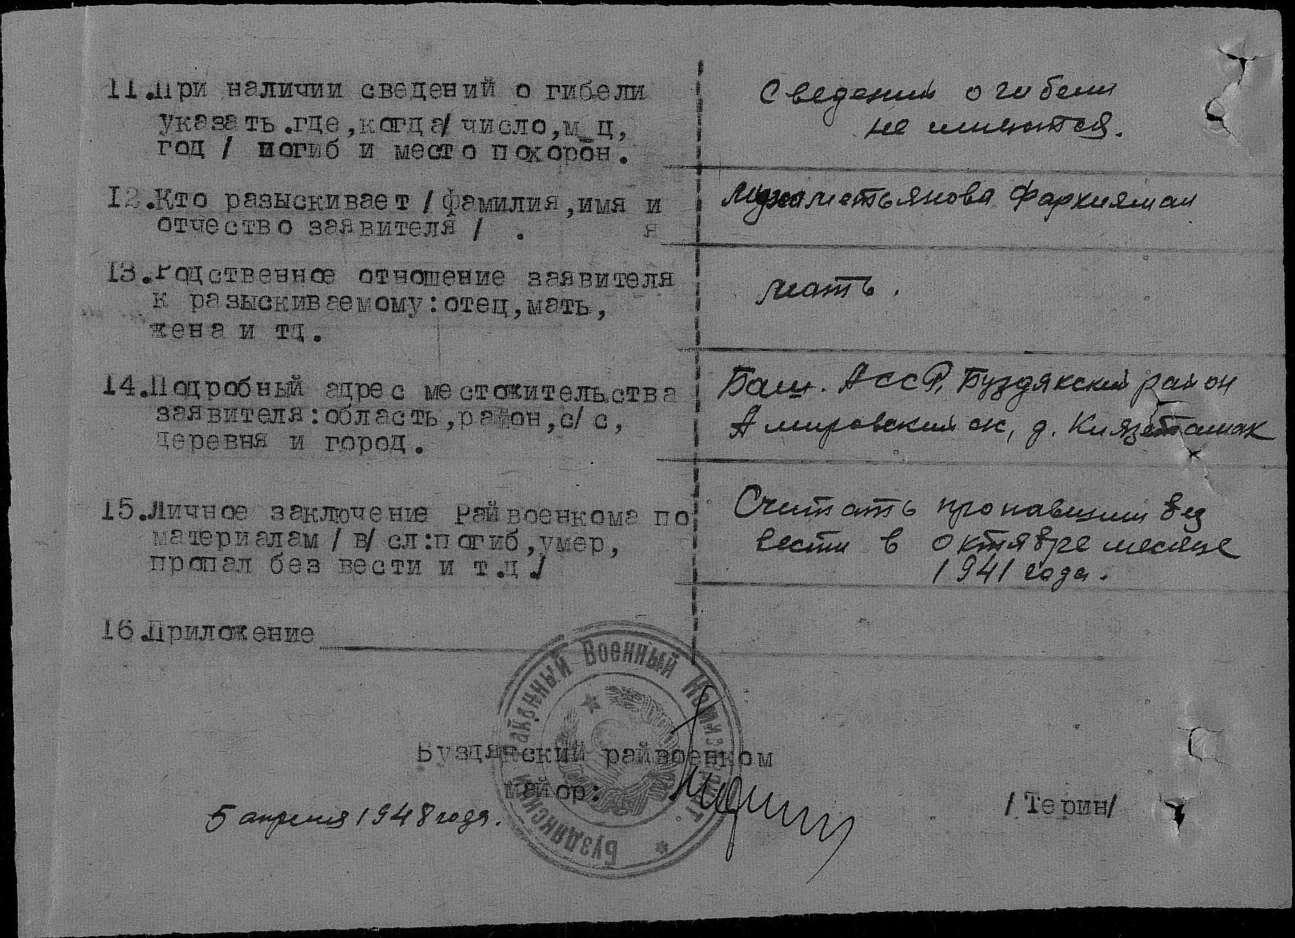 11.При наличии сведений о гибели
указать.где,когда/ число,м_ц,
год / погиб и место похорон.
Сведений о гибели
не имеются.
12.Кто разыскивает /фамилия,имя и
отчество заявителя / . я
Мухаметьянова Фархиямал
13.Родственное отношение заявителя
к разыскиваемому:отец,мать,
жена и тд.
мать.
14.Подробный адрес местожительства
заявителя:область,район,с/с,
деревня и город.
Баш. АССР, Буздякский район
Амировский с/с, д. Князеташак
15.Личное заключение Райвоенкома по
материалам /в/ сл:погиб,умер,
пропал без вести и т.д./
Считать пропавшим без
вести в октябре месяце
1941 года.
16.Приложение
Буздякский Районный Военный Комиссариат.
Буздякский райвоенком
майор:
/Терин/
5 апреля 1948 года.